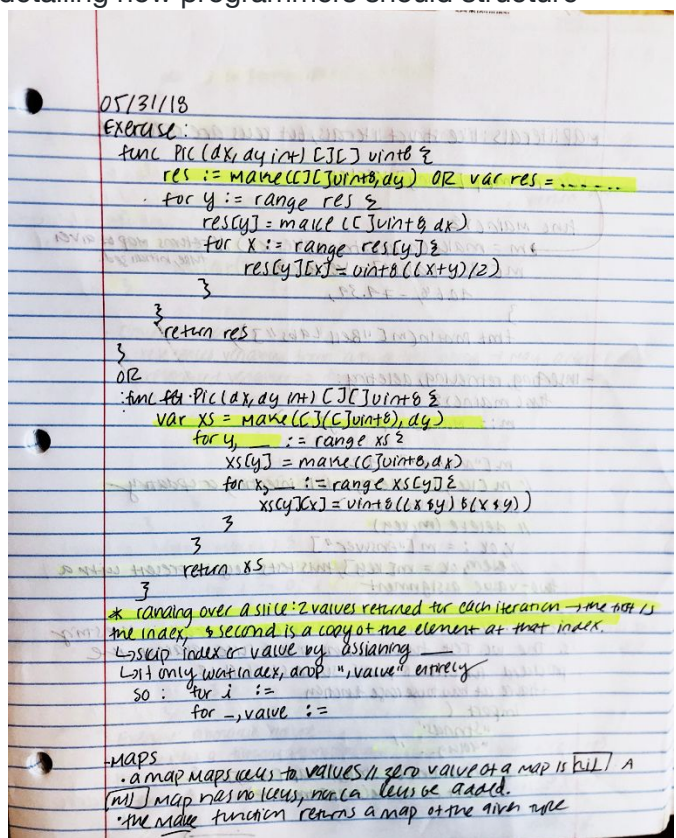 detailing how programmers should structure
05/31/18
Exercise:
func Pic(dx, dy int) [][] uint8 {
res := make([][]uint8, dy) OR var res = ......
for y := range res {
res[y] = make([]uint8, dx)
for x := range res[y] {
res[y][x] = uint8((x+y)/2)
}
}
return res
}
OR
func Pic(dx, dy int) [][]uint8 {
var xs = make([]([]uint8), dy)
for y, __ := range xs {
xs[y] = make([]uint8, dx)
for x, __ := range xs[y] {
xs[y][x] = uint8((x $ y) $ (x $ y))
}
}
return xs
}
* ranging over a slice: 2 values returned for each iteration → the first is
the index, & second is a copy of the element at that index.
↳ skip index or value by assigning __
↳ if only want index, drop ", value" entirely
so: for i :=
for _, value :=
-MAPS
• a map maps keys to values // zero value of a map is nil] A
nil] map has no keys, nor can keys be added.
• the make function returns a map of the given type